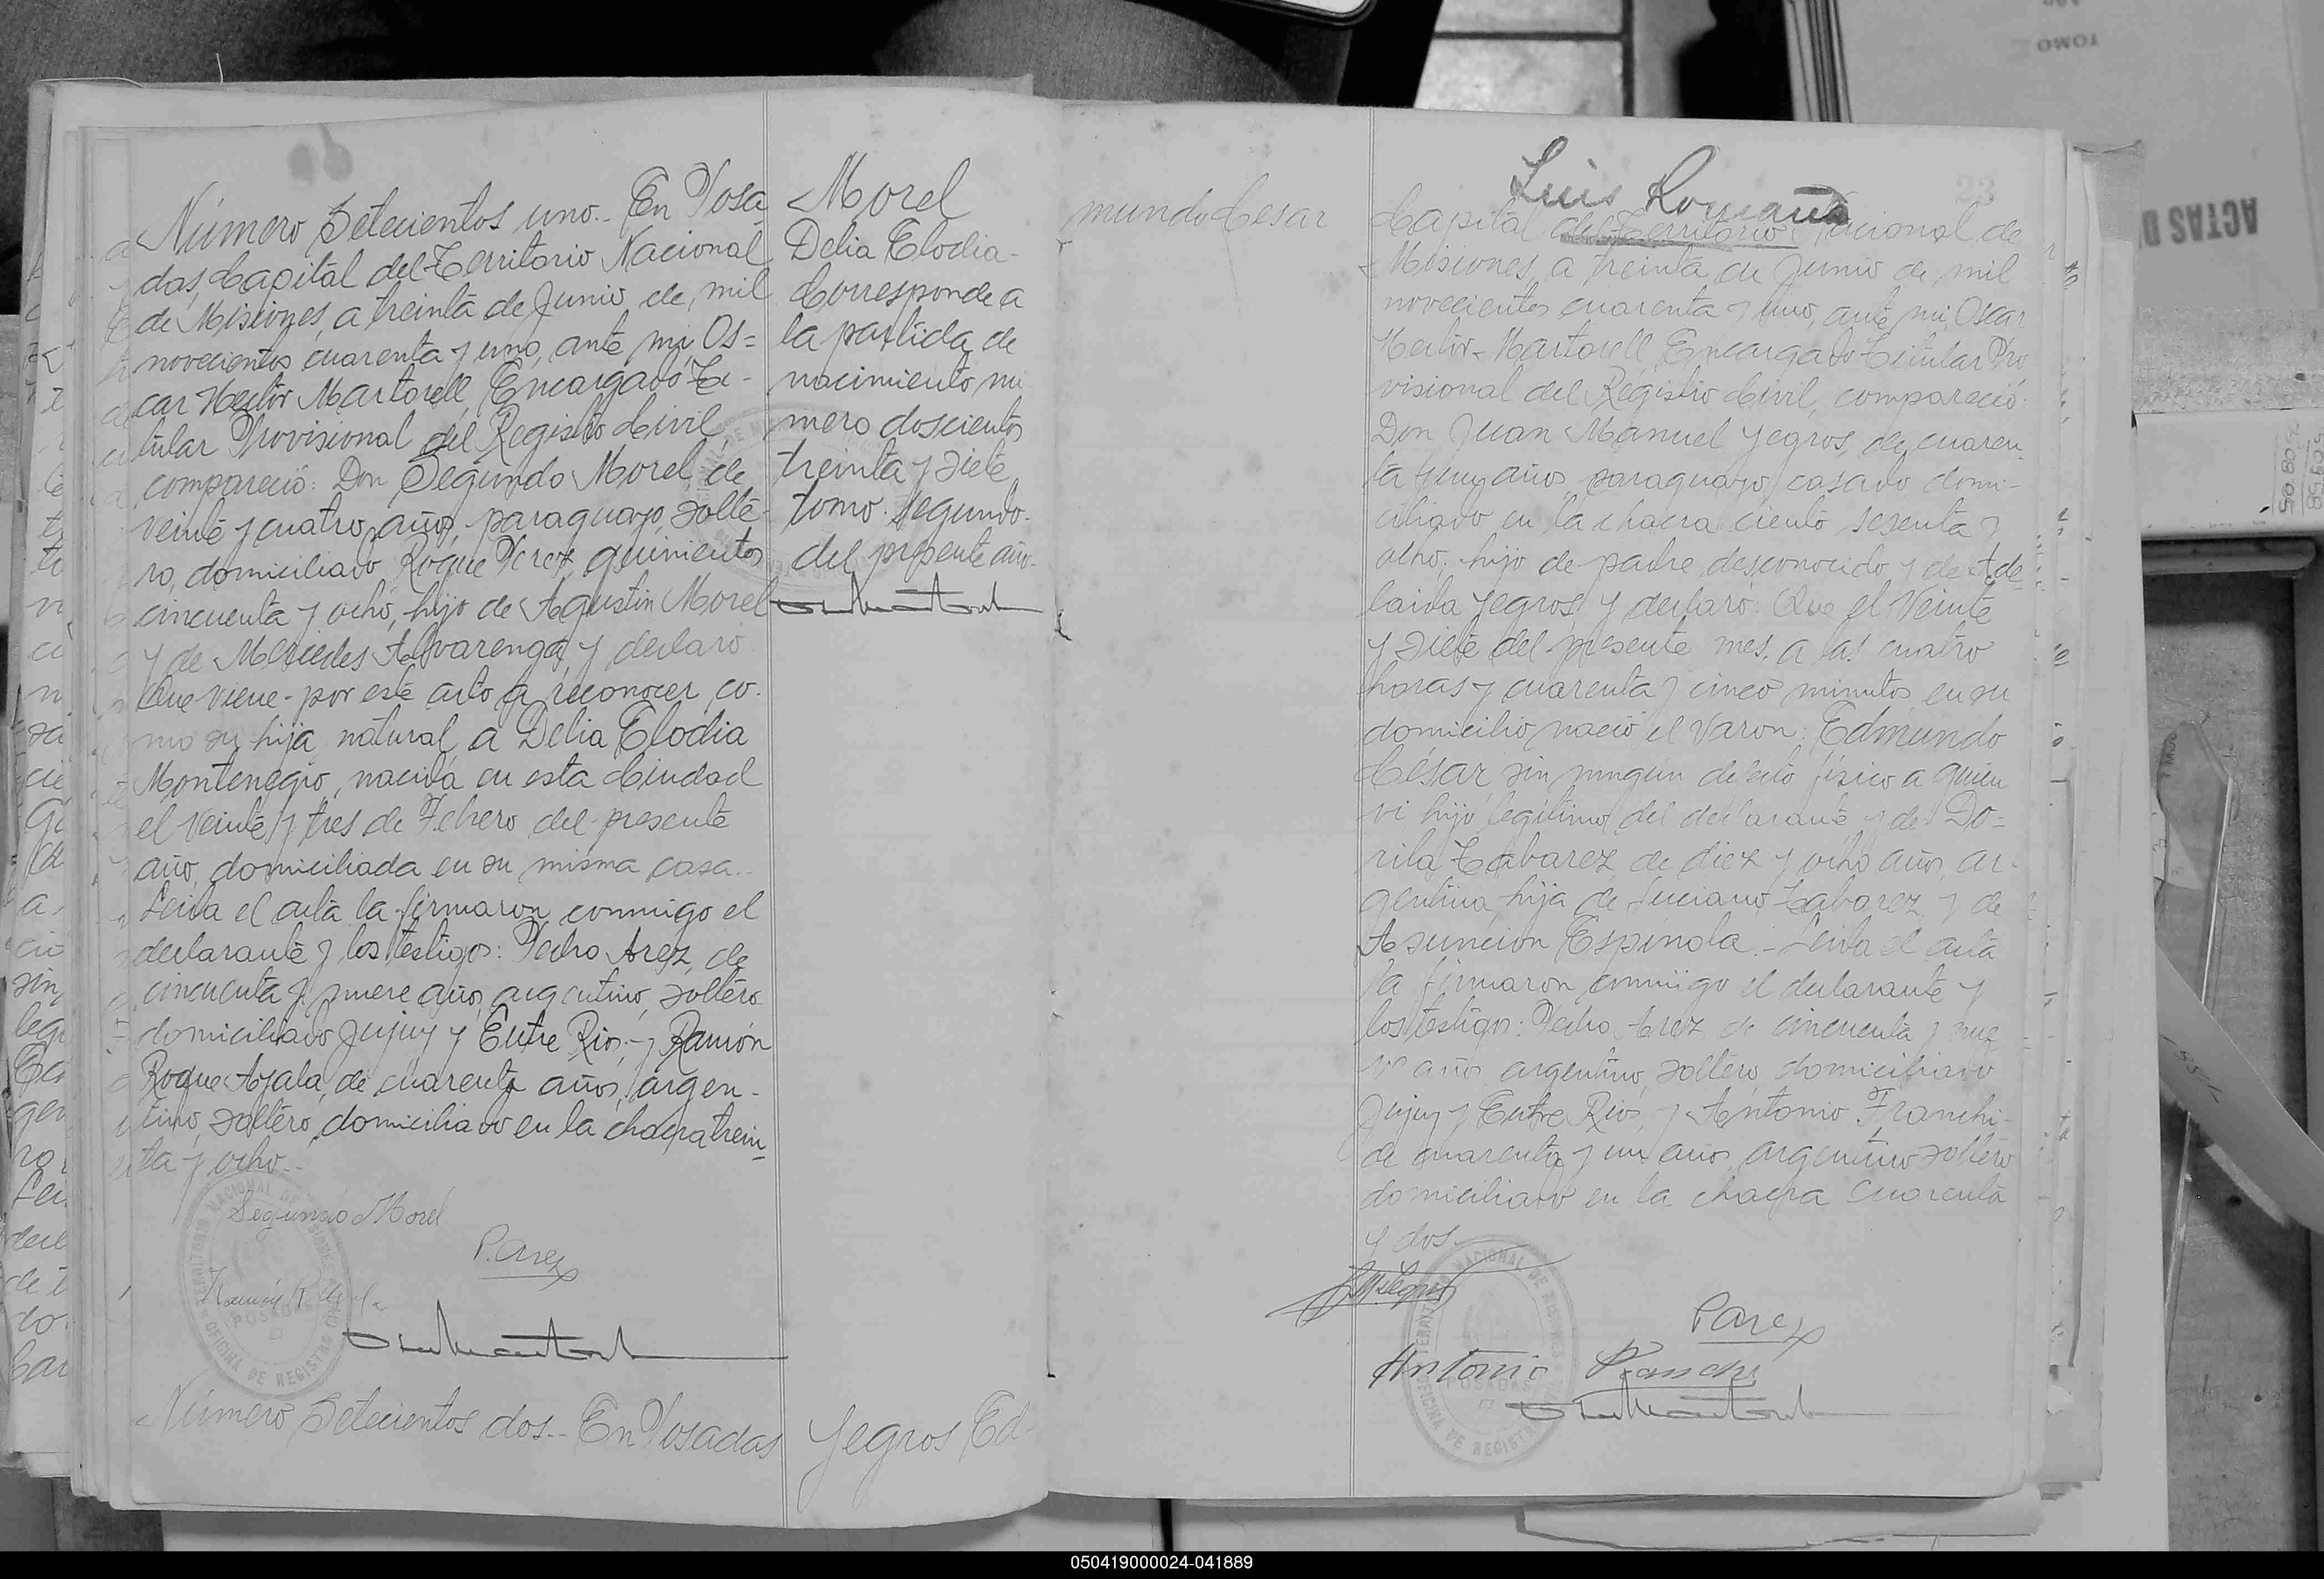 Número Setecientos uno.- En Posa
das, Capital del Territorio Nacional
de Misiones, a treinta de Junio de mil
novecientos cuarenta y uno, ante mi Os=
car Hector Martorell Encargado Ti-
tular Provisional del Registro Civil,
compareció: Don Segundo Morel, de
veinte y cuatro años, paraguayo, solte-
ro, domiciliado Roque Perez quinientos
cincuenta y ocho, hijo de Agustin Morel
y de Mercedes Alvarenga, y declaró
Que viene por este acto a reconocer co-
mo su hija natural a Delia Elodia
Montenegro, nacida en esta Ciudad
el veinte y tres de Febrero del presente
año, domiciliada en su misma casa.-
Leida el acta la firmaron conmigo el
declarante y los testigos: Pedro Arez, de
cincuenta y nueve años, argentino, soltero
domiciliado Jujuy y Entre Rios.- y Ramón
Roque Ayala, de cuarenta años, argen-
tino, soltero, domiciliado en la chacra trein=
ta y ocho.-
Segundo Morel
P. Arez
Ramón R Ayala
TERRITORIO NACIONAL DE MISIONES
POSADAS
OFICINA DE REGISTRO
Número Setecientos dos.- En Posadas
Morel
Delia Elodia-
Corresponde a
la partida de
nacimiento nú
mero doscientos
treinta y siete
tomo segundo-
del presente año-
Yegros Ed-
mundo Cesar
Luis Romaña
23
Capital del Territorio Nacional de
Misiones, a treinta de Junio de mil
novecientos cuarenta y uno, ante mi, Oscar
Hector Martorell Encargado Titular Pro
visional del Registro Civil, compareció:
Don Juan Manuel Yegros, de cuaren
ta y un años, paraguayo, casado domi-
ciliado en la chacra ciento sesenta y
ocho, hijo de padre desconocido y de Ade=
laida Yegros, y declaró: Que el Veinte
y siete del presente mes, a las cuatro
horas y cuarenta y cinco minutos en su
domicilio nació el varon: Edmundo
César, sin ningun defecto fisico a quien
vi hijo legitimo del declarante y de Do=
rila Tabarez, de diez y ocho años, ar-
gentina, hija de Luciano Tabarez y de
Asuncion Espinola.- Leida el acta
la firmaron conmigo el declarante y
los testigos: Pedro Arez de cincuenta y nue
ve años argentino, soltero, domiciliado
Jujuy y Entre Rios, y Antonio Franchi-
de cuarenta y un años, argentino soltero
domiciliado en la chacra cuarenta
y dos.-
P Arez
Antonio Franchi
TERRITORIO NACIONAL DE MISIONES
POSADAS
OFICINA DE REGISTRO
TOMO
ACTAS D
050419000024-041889